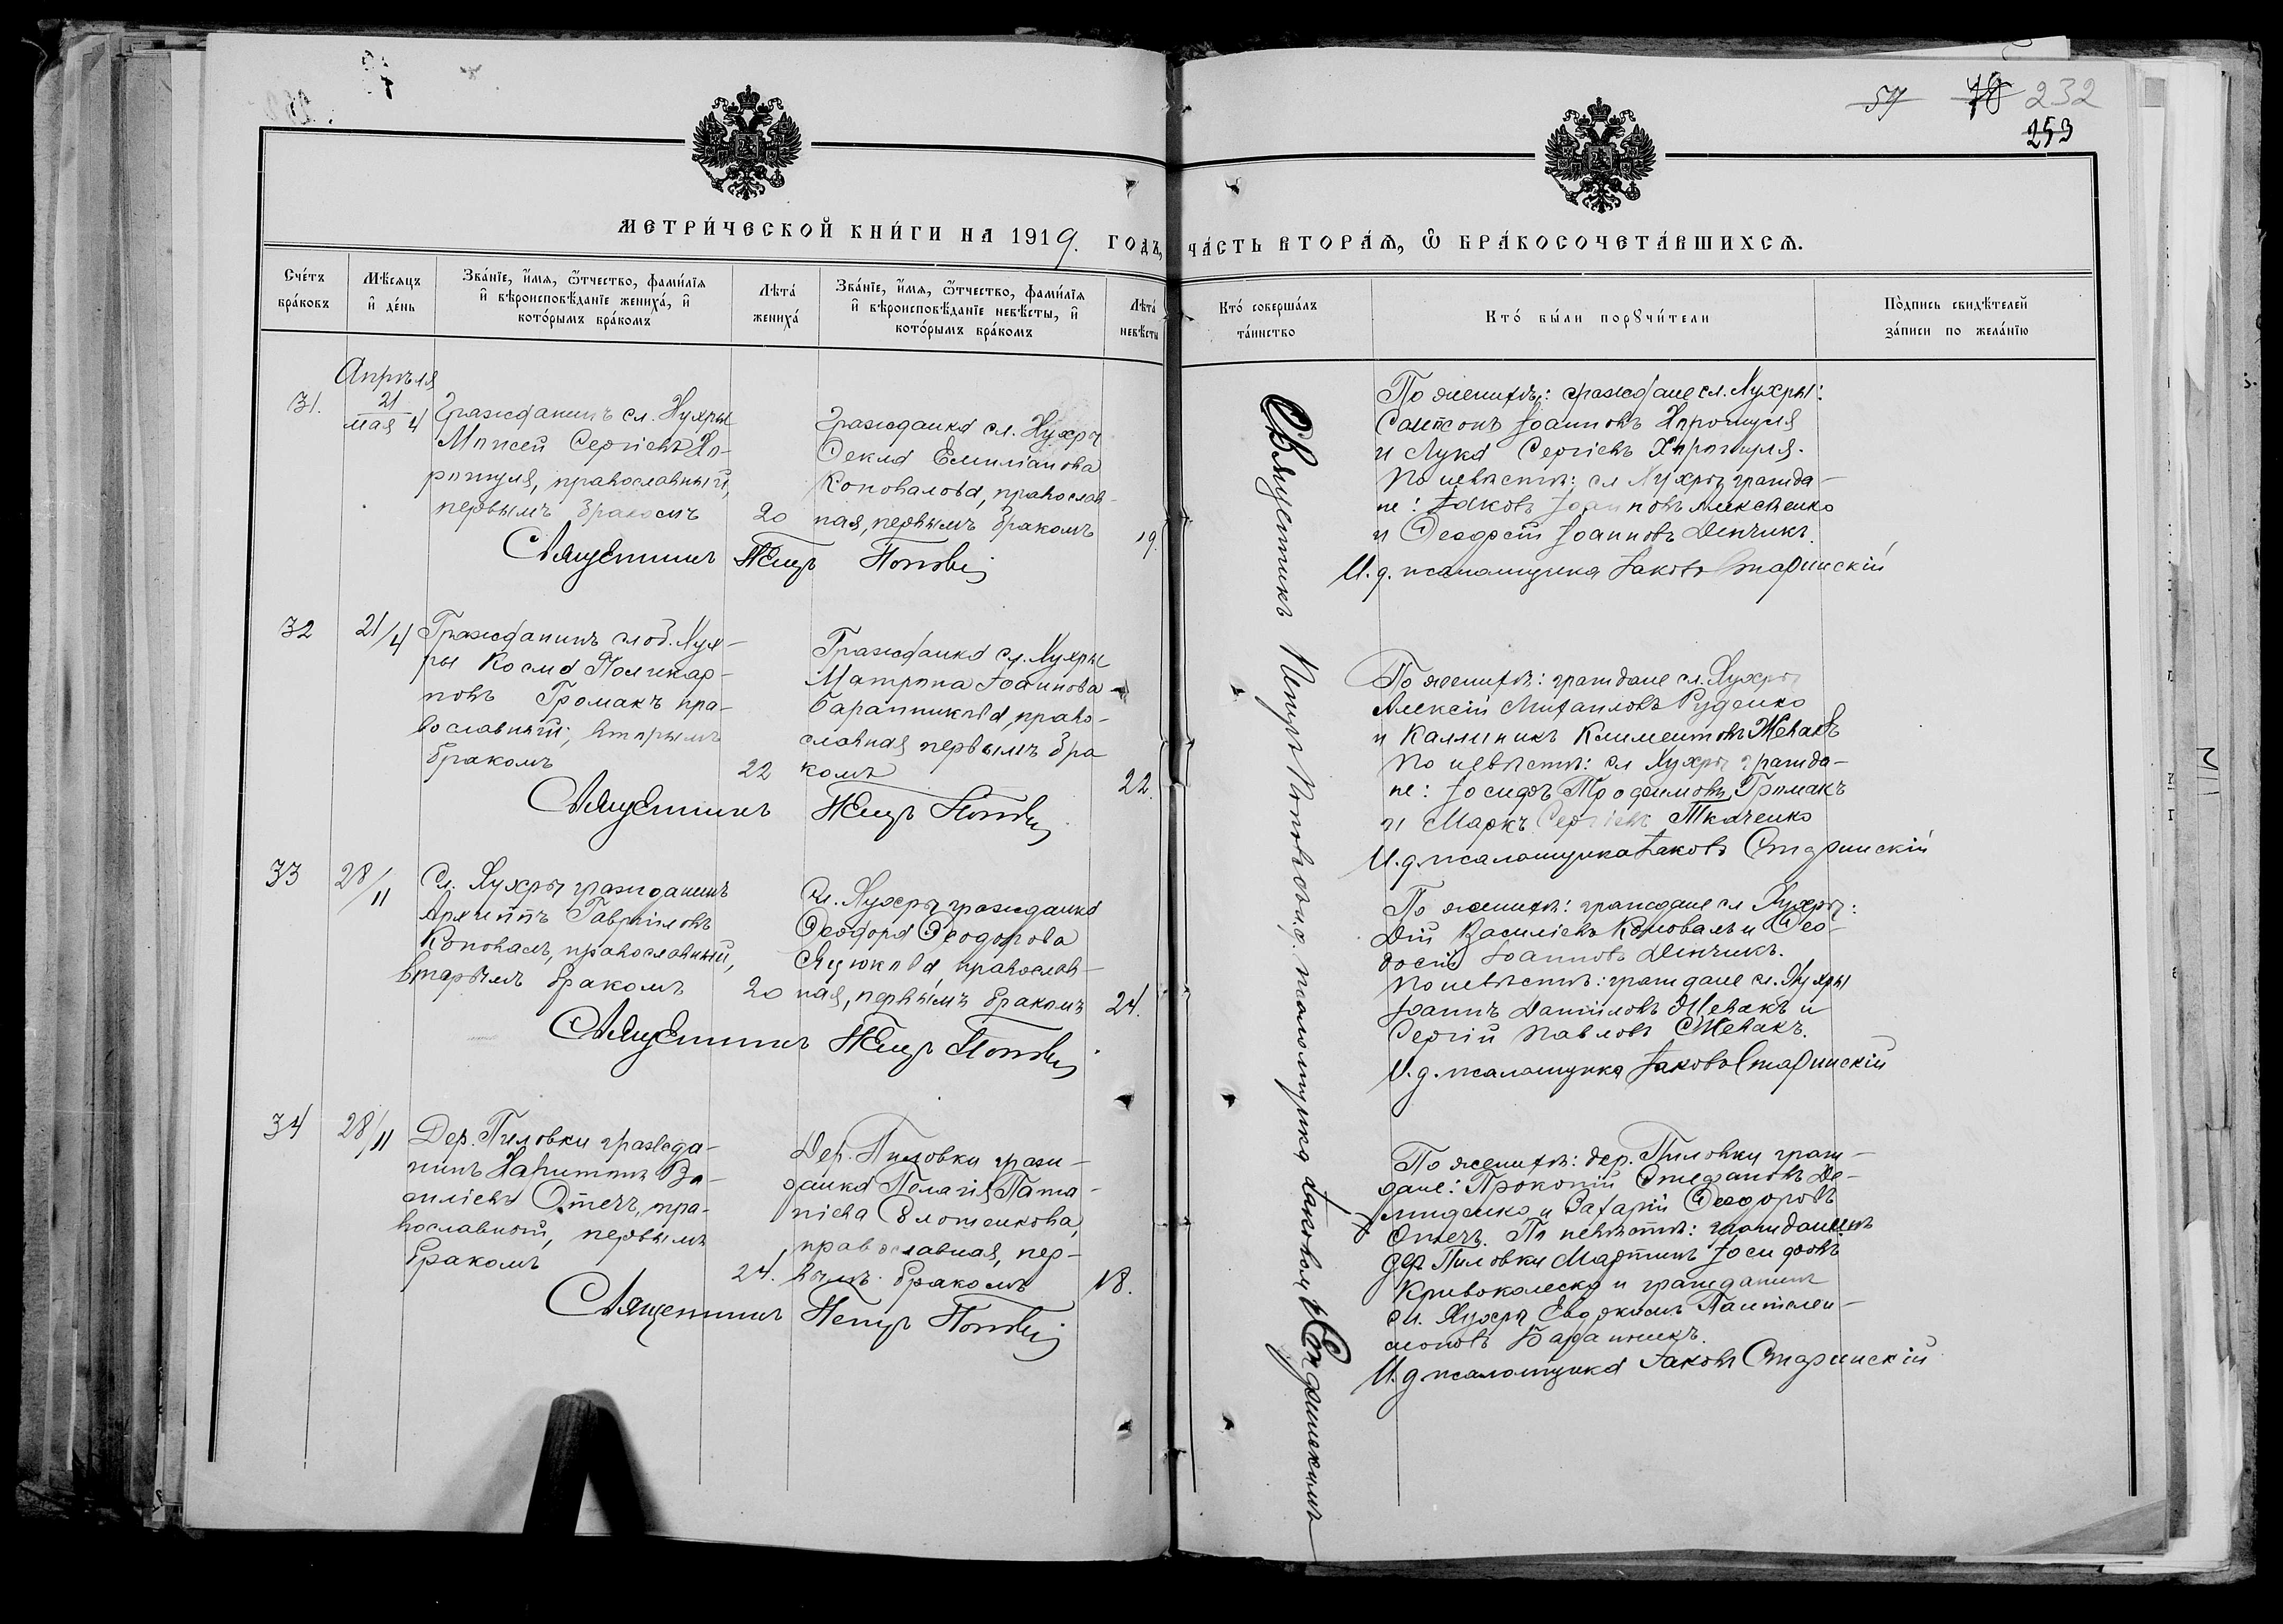 57 78 232
253
МЕТРИЧЕСКОЙ КНИГИ НА 1919. ГОДЪ,
ЧАСТЬ ВТОРАЯ, Ѿ БРАКОСОЧЕТАВШИХСЯ.
Счетъ браковъ
Мѣсяцъ и день
Званіе, имя, ѿтчество, фамилія и вѣроисповѣданіе жениха, и которымъ бракомъ
Лѣта жениха
Званіе, имя, ѿтчество, фамилія и вѣроисповѣданіе невѣсты, и которымъ бракомъ
Лѣта невѣсты
Кто совершалъ таинство
Кто были порꙋчители
Подпись свидѣтелей записи по желанію
31.
Апрѣля
21
мая 4
Гражданинъ сл. Мухры
Моисей Сергіевъ Хо-
ришуля, православный,
первымъ бракомъ
20
Гражданка сл. Мухры
Ѳекла Емиліанова
Коновалова, православ-
ная, первымъ бракомъ
19.
Священникъ Петръ Попов
По женихѣ: граждане сл. Мухры:
Сампсонъ Іоанновъ
и Лука Сергіевъ
По невѣстѣ: сл Мухры гражда-
не: Іаковъ Іоанновъ Алексѣенко
и Ѳеодосій Іоанновъ Денчикъ.
И. д. псаломщика Іаковъ Старинскій
32
21/4
Гражданинъ слоб. Мух-
ры Косма Поликар-
повъ Громакъ пра-
вославный, вторымъ
бракомъ
22
Гражданка сл. Мухры
Матрона Іоаннова
Баранникова, право-
славная первымъ бра
комъ
22.
Священникъ Петръ Попов
По женихѣ: граждане сл. Мухры
Алексій Михаиловъ Руденко
и Каллиникъ Климентовъ Жевакъ
По невѣстѣ: сл Мухры гражда-
не: Іосифъ Трофимовъ Громакъ
и Маркъ Сергіевъ Ткаченко
И. д. псаломщика Іаковъ Старинскій
33
28/11
Сл. Мухры гражданинъ
Архиппъ Гавріиловъ
Коновалъ, православный,
вторымъ бракомъ
20
Сл. Мухры гражданка
Ѳеодора Ѳеодорова
православ-
ная, первымъ бракомъ
24.
Священникъ Петръ Попов
По женихѣ: граждане сл Мухры:
Василіевъ Коновалъ и Ѳео-
досій Іоанновъ Денчикъ.
По невѣстѣ: граждане сл. Мухры
Іоаннъ Даниловъ Жевакъ и
Сергій Павловъ Жевакъ.
И. д. псаломщика Іаковъ Старинскій
34
28/11
Дер. Пиловки гражда-
нинъ Ва-
силіевъ Отечъ, пра-
вославный, первымъ
бракомъ
24.
Дер. Пиловки граж-
данка Пелагія
православная, пер-
вымъ бракомъ
18.
Священникъ Петръ Попов
По женихѣ: дер. Пиловки граж-
дане: Прокопій Стефановъ Де-
миденко и Захарій Ѳеодоровъ
Отечъ. По невѣстѣ: гражданинъ
дер. Пиловки Мартинъ Іосифовъ
Кривоколеско и гражданинъ
сл. Мухры Евдокимъ Пантелеи-
моновъ Баранникъ.
И. д. псаломщика Іаковъ Старинскій
Священникъ Петръ Поповъ съ и. д. псаломщика Іаковомъ Старинскимъ